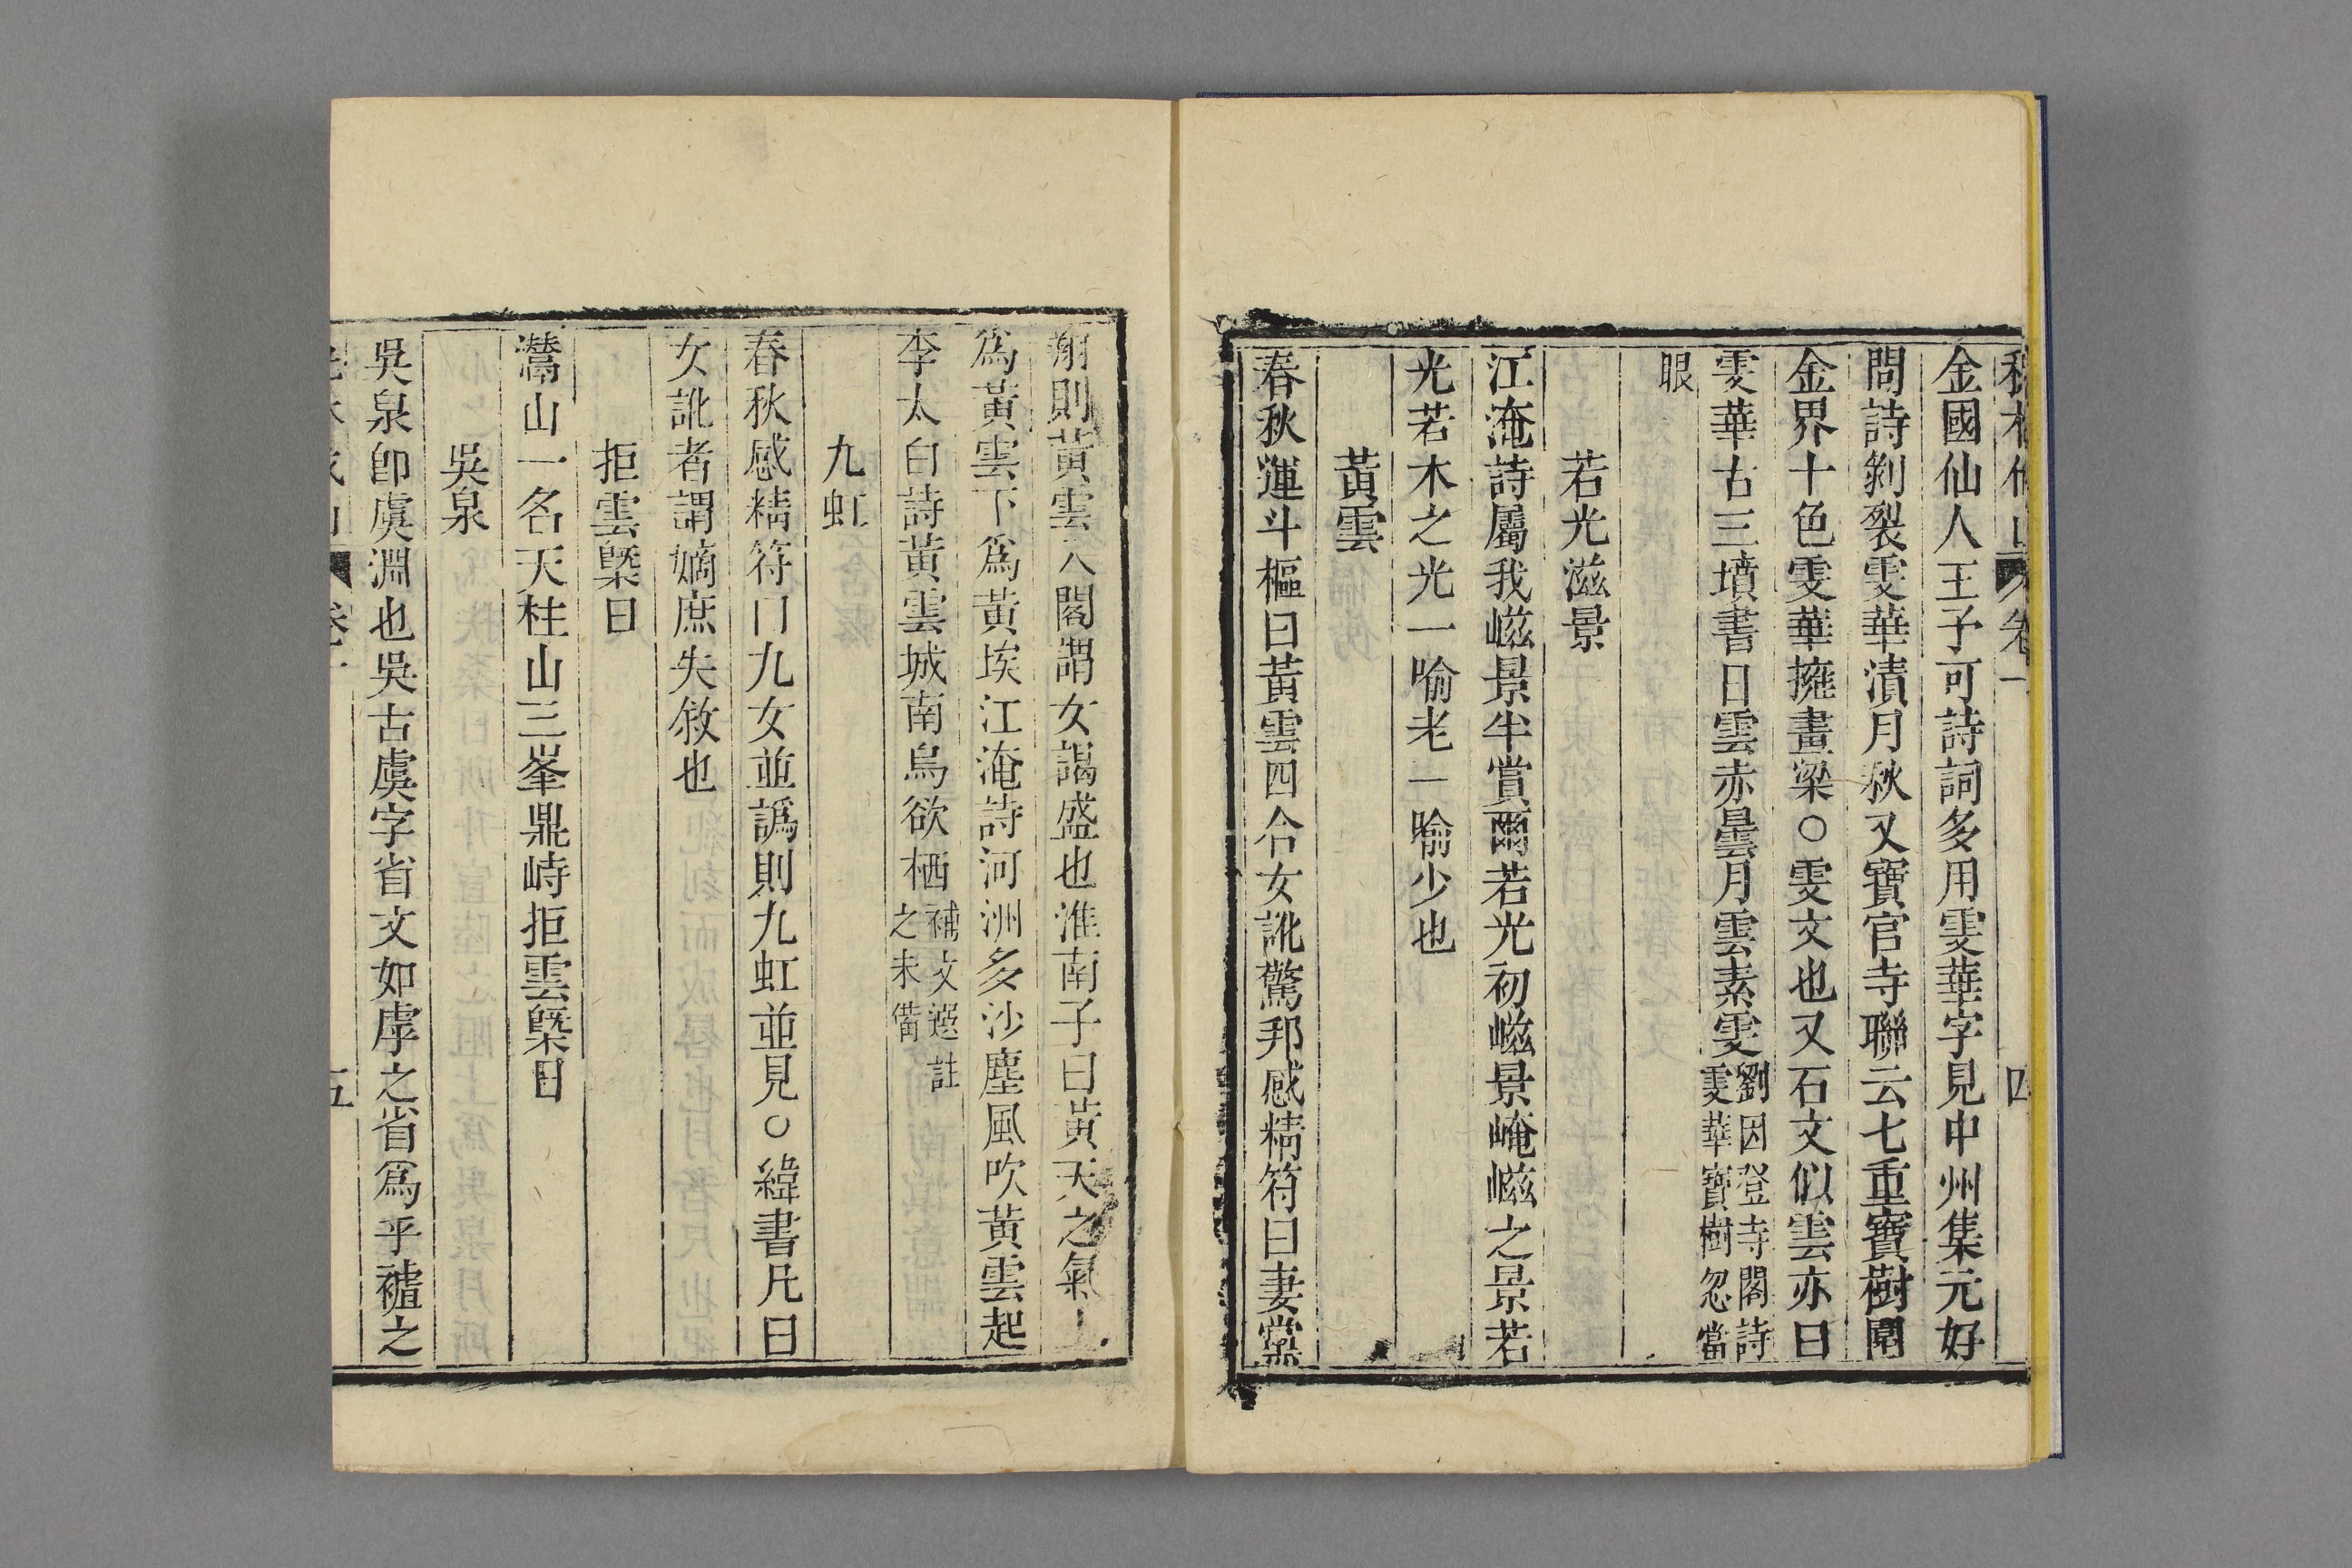 卷一
四
金國仙人王予可詩詞多用雯華字見中州集元好
問詩剝裂雯華漬月秋又寶宫寺聯云七重寶樹圍
金界十色雯華擁畫梁○雯文也又石文似雲亦曰
雯華古三墳書曰雲赤曇月雲素雯劉因登寺閣詩雯華寶樹忽當
眼
若光滋景
江淹詩屬我嵫景半賞爾若光初嵫景崦嵫之景若
光若木之光一喻老一喻少也
黃雲
春秋運斗樞曰黃雲四合女訛驚邦感精符曰妻黨
翔則黃雲入閣謂女謁盛也淮南子曰黃天之氣上
為黃雲下為黃埃江淹詩河洲多沙塵風吹黃雲起
李太白詩黃雲城南烏欲栖補文選註之未備
九虹
春秋感精符曰九女並譌則九虹並見○緯書凡曰
女訛者謂嫡庶失敘也
拒雲槩日
灊山一名天柱山三峯鼎峙拒雲槩日
吳泉
吳泉卽虞淵也吳古虞字省文如虖之省爲乎䄜之
五